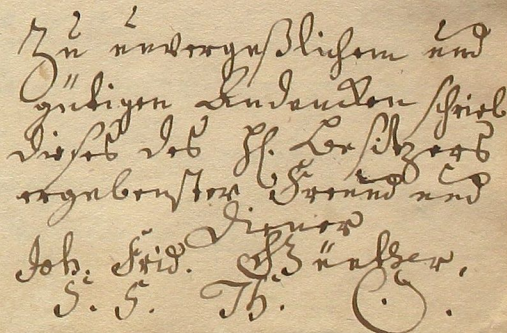 Zu unvergeßlichem und
gütigen Andencken schrieb
dieses des H. Besitzers
ergebenster Freund und
Diener
Joh. Frid.
S. S. Th. C.